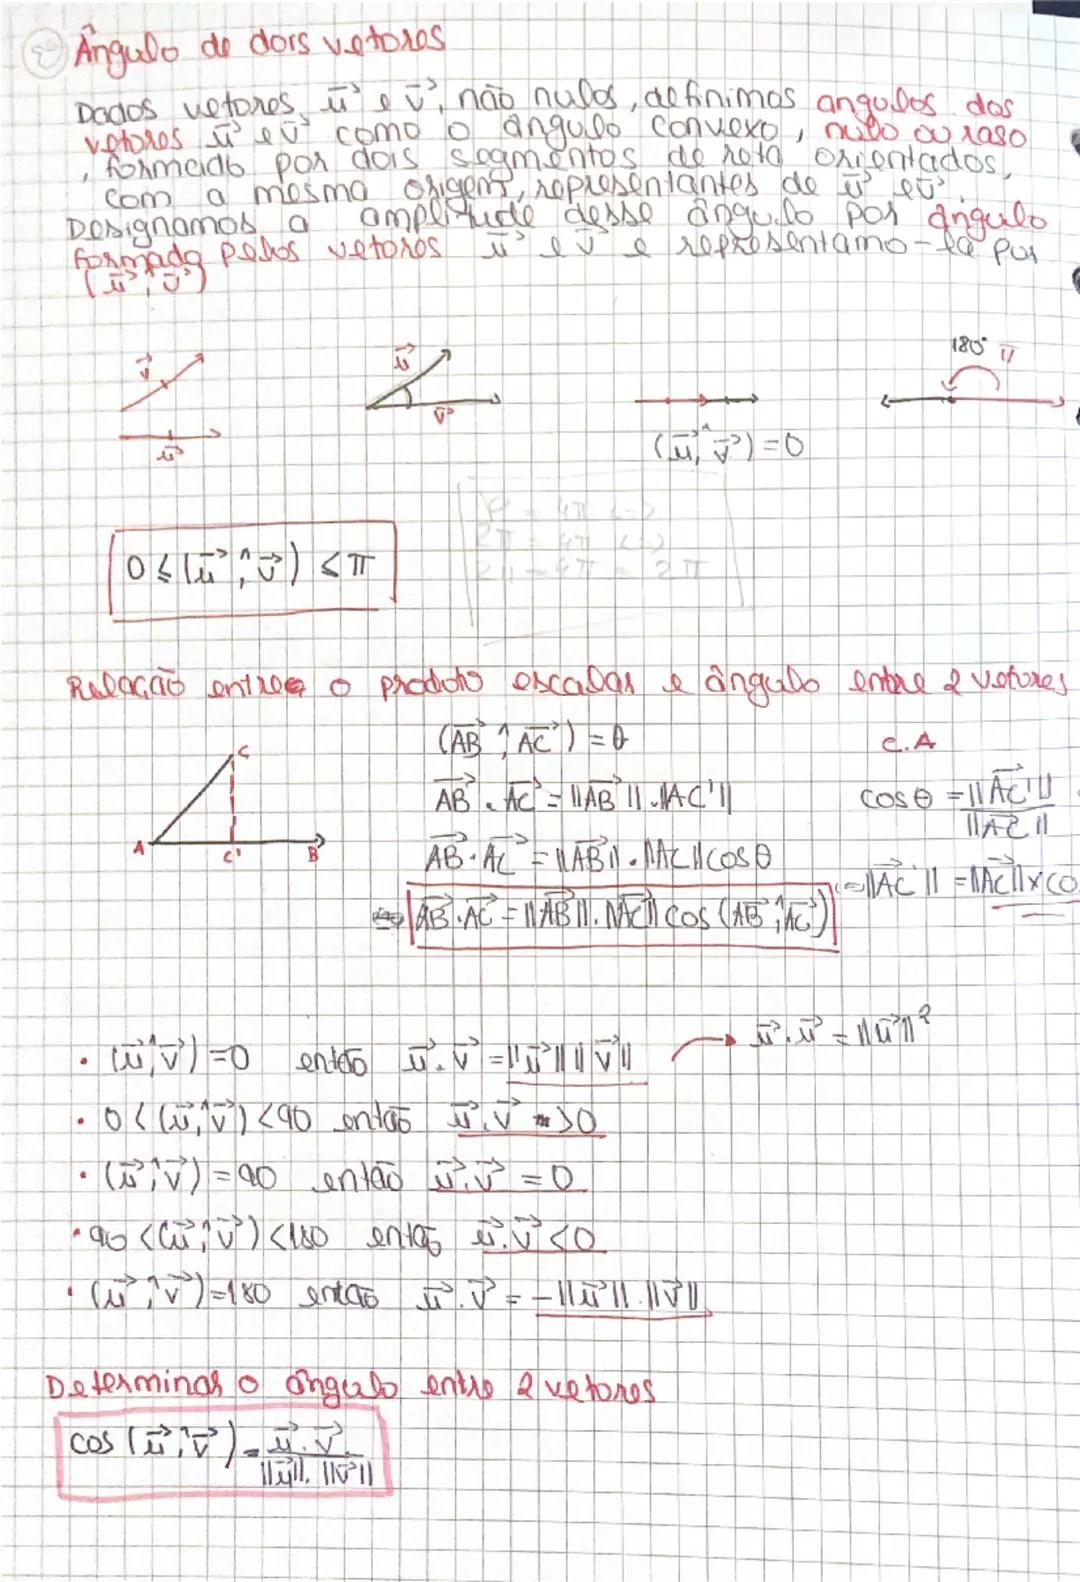 Ângulo de dois vetores
Dados vetores u⃗ e v⃗, não nulos, definimos angulos dos
vetores u⃗ e v⃗ como o ângulo convexo, nulo ou raso
, formado por dois segmentos de reta orientados,
com a mesma origem, representantes de u⃗ e v⃗.
Designamos a amplitude desse ângulo por ângulo
formado pelos vetores u⃗ e v⃗ e representamo-la por
(u⃗ ^, v⃗)
v⃗
u⃗
u⃗
v⃗
(u⃗ ^, v⃗) = 0
180°
0 ≤ (u⃗ ^, v⃗) ≤ π
= 4π <->
2π = 4π <->
2π = 4π = 2π
Relação entre o produto escalar e ângulo entre 2 vetores
C
A
C'
B
(AB⃗ ^, AC⃗) = θ
AB⃗ . AC⃗ = ||AB⃗|| . ||AC'||
AB⃗ . AC⃗ = ||AB|| . ||AC|| cos θ
AB⃗ . AC⃗ = ||AB⃗|| . ||AC⃗|| cos (AB⃗ ^, AC⃗)
C.A
cos θ = ||AC⃗'|| / ||AC⃗||
= ||AC⃗'|| = ||AC⃗|| x co
• (u⃗ ^, v⃗) = 0 então u⃗ . v⃗ = ||u⃗|| ||v⃗|| → u⃗ . u⃗ = ||u⃗||²
• 0 < (u⃗ ^, v⃗) < 90 então u⃗ . v⃗ > 0
• (u⃗ ^, v⃗) = 90 então u⃗ . v⃗ = 0
• 90 < (u⃗ ^, v⃗) < 180 então u⃗ . v⃗ < 0
• (u⃗ ^, v⃗) = 180 então u⃗ . v⃗ = - ||u⃗|| . ||v⃗||
Determinar o ângulo entre 2 vetores
cos (u⃗ ^, v⃗) = u⃗ . v⃗ / ||u⃗|| . ||v⃗||